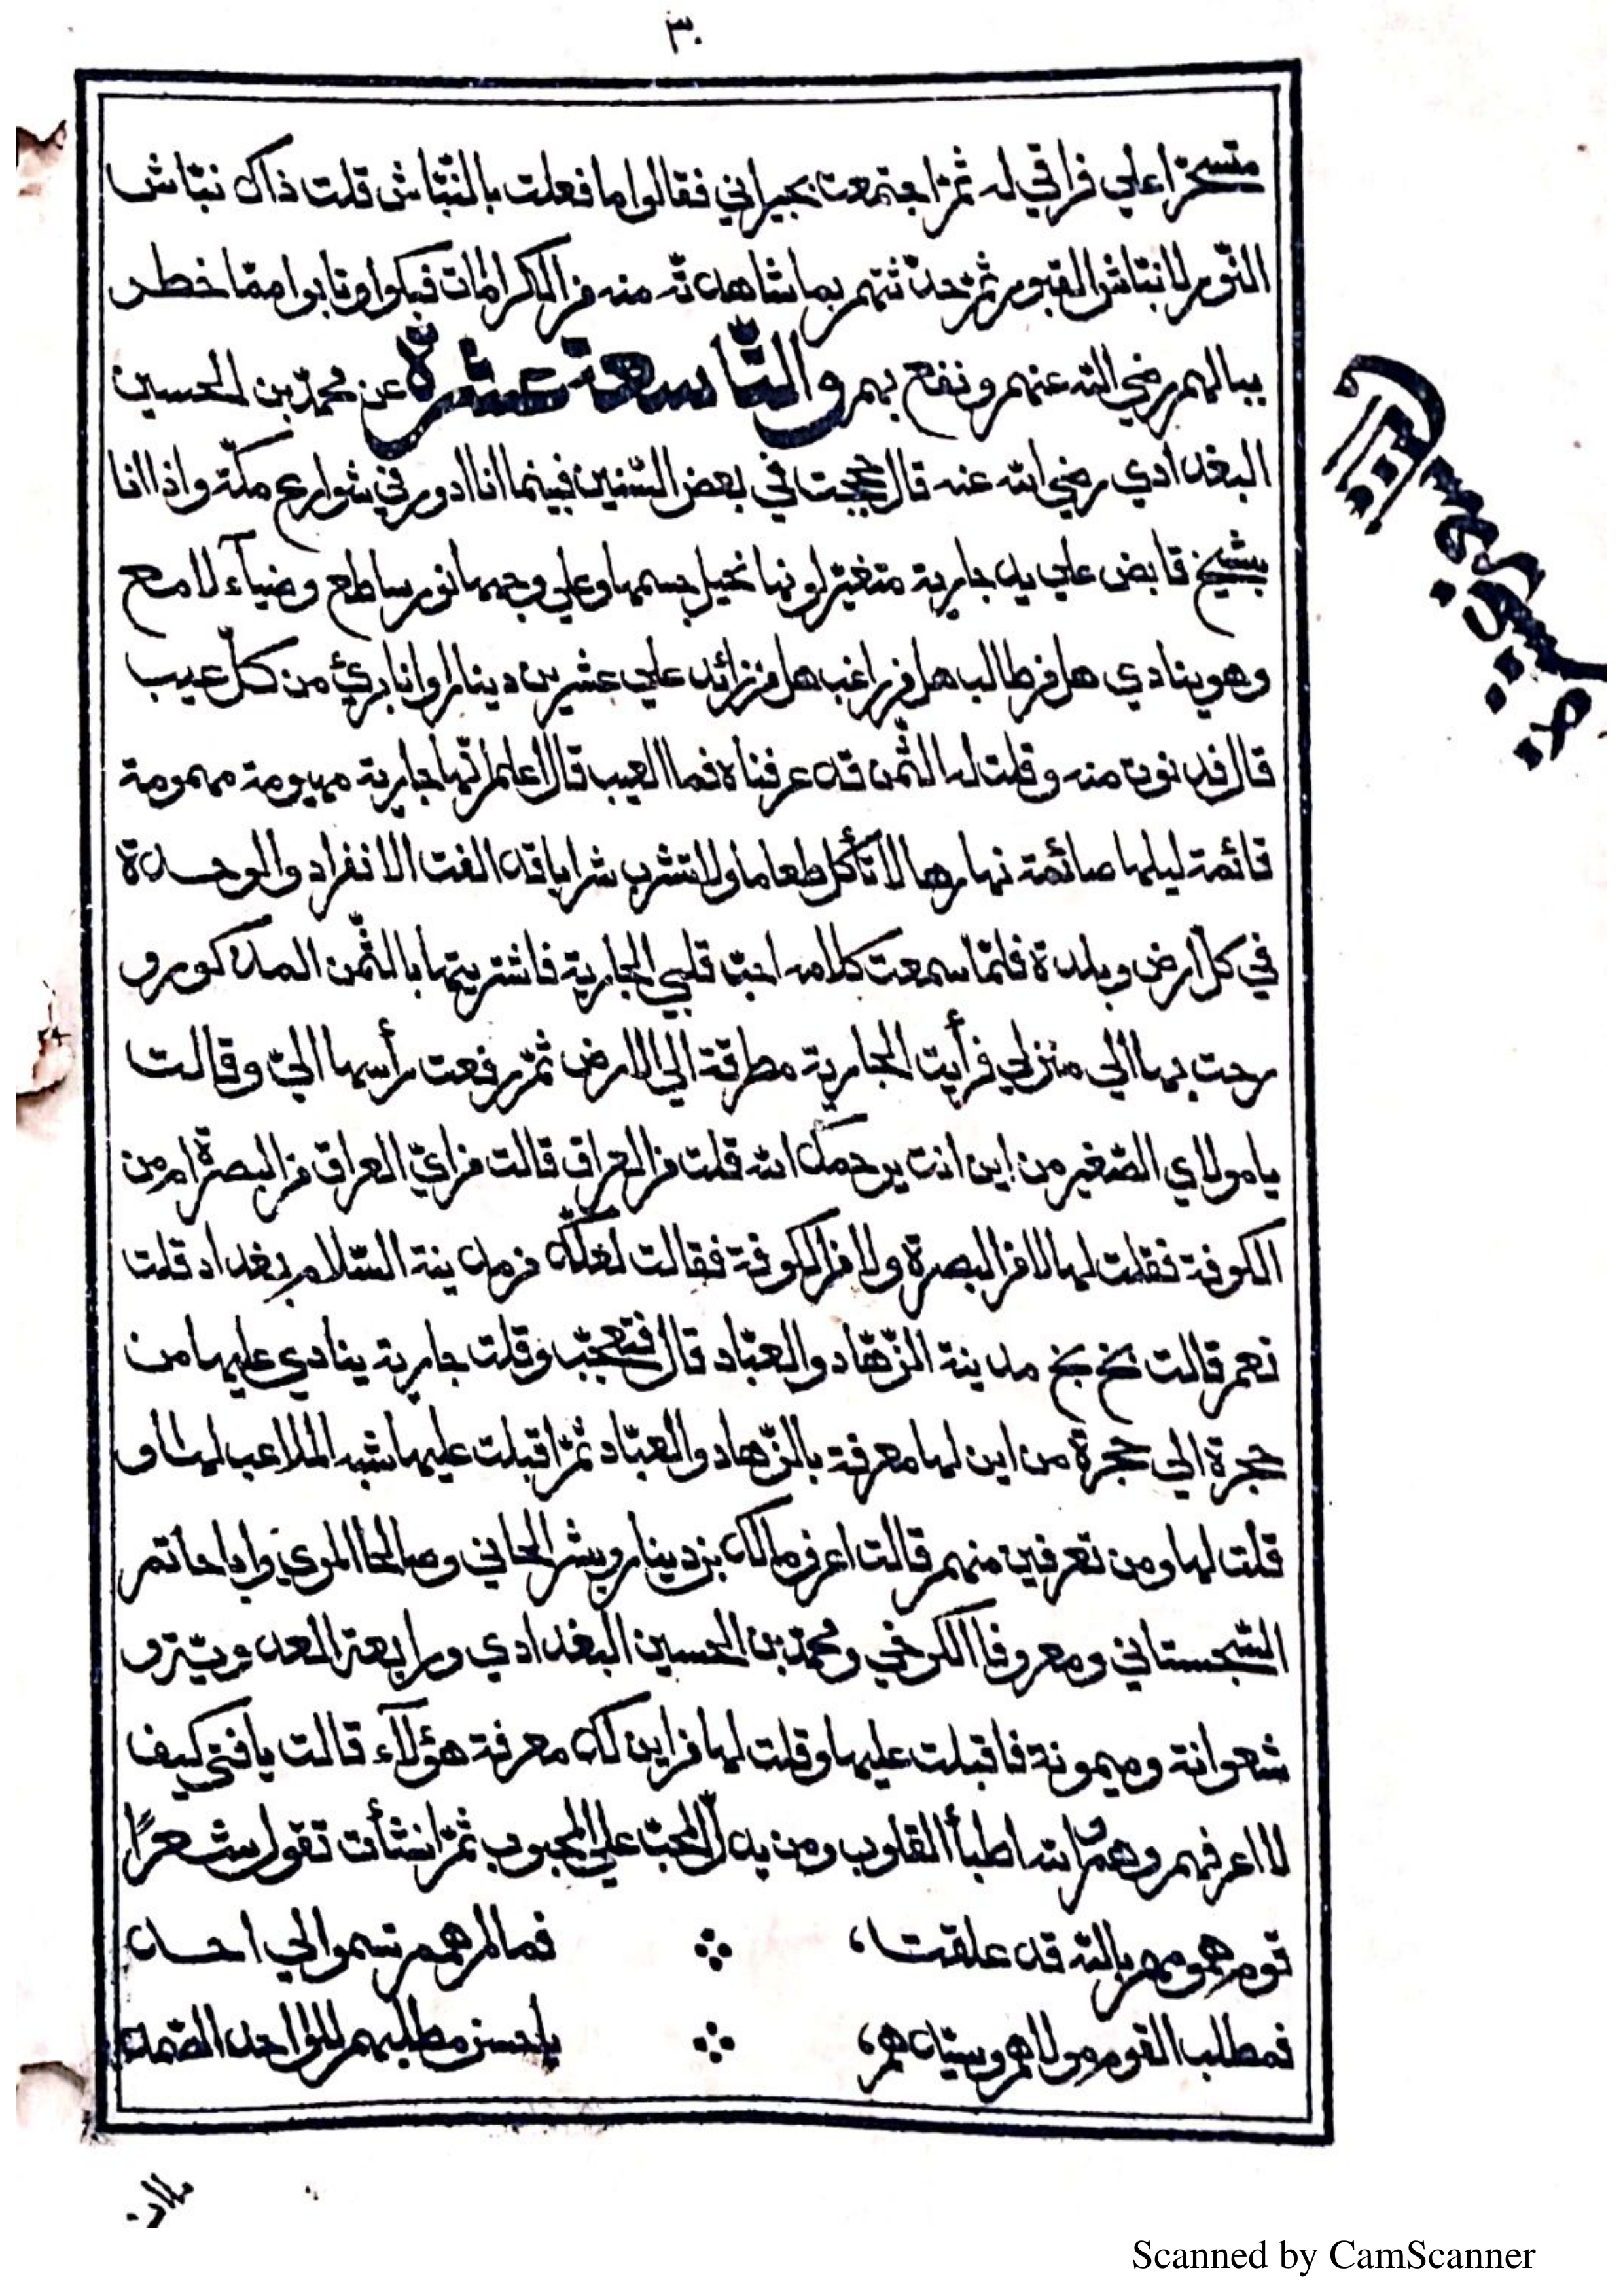 ٣٠
متحسّرا علي فراقي له ثمّ اجتمعت بجيراني فقالوا ما فعلت بالنبّاش قلت ذاك نبّاش
النّور لا نبّاش القبور ثمّ حدّثتهم بما شاهدتّه منه من الكرامات فبكوا وتابوا ممّا خطر
ببالهم رضي الله عنهم ونفع بهم والتّاسعة عشرة عن محمّد بن الحسين
البغدادي رضي الله عنه قال حججت في بعض السّنين فبينما انا ادور في شوارع مكّة واذا انا
بشيخ قابض علي يد جارية متغيّر لونها نحيل جسمها وعلي وجهها نور ساطع وضيآء لامع
وهو ينادي هل من طالب هل من راغب هل من زائد علي عشرين دينارا وانا برئ من كلّ عيب
قال فدنوت منه وقلت له الثّمن قد عرفناه فما العيب قال اعلم انّها جارية مهيومة مهمومة
قائمة ليلها صائمة نهارها لا تأكل طعاما ولا تشرب شرابا قد الفت الانفراد والوحدة
في كلّ ارض وبلدة فلمّا سمعت كلامه احبّ قلبي الجارية فاشتريتها بالثّمن المذكور و
رحت بها الي منزلي فرأيت الجارية مطرقة الي الارض ثمّ رفعت رأسها اليّ وقالت
يا مولاي الصّغير من اين انت يرحمك الله قلت من العراق قالت من ايّ العراق من البصرة ام من
الكوفة فقلت لها لا من البصرة ولا من الكوفة فقالت لعلّك من مدينة السّلام بغداد قلت
نعم قالت بخ بخ مدينة الزّهّاد والعبّاد قال فتعجّبت وقلت جارية ينادي عليها من
حجرة الي حجرة من اين لها معرفة بالزّهاد والعبّاد ثمّ اقبلت عليها شبه الملاعب لها و
قلت لها ومن تعرفين منهم قالت اعرف مالك بن دينار وبشر الحافي وصالحا المري وابا حاتم
السّجستاني ومعروفا الكرخي ومحمّد بن الحسين البغدادي ورابعة العدويّة و
شعوانة وميمونة فاقبلت عليها وقلت لها من اين لك معرفة هؤلآء قالت يا فتي كيف
لا اعرفهم وهم والله اطبأ القلوب ومن يدلّ المحبّ علي المحبوب ثمّ انشأت تقول شعرًا
قوم همومهم بالله قد علقت، فما لهم همم تسموا الي احد
فمطلب القوم مولاهم وسيّدهم، يا حسن مطلبهم للواحد الصّمد
التاسعة عشرة
Scanned by CamScanner